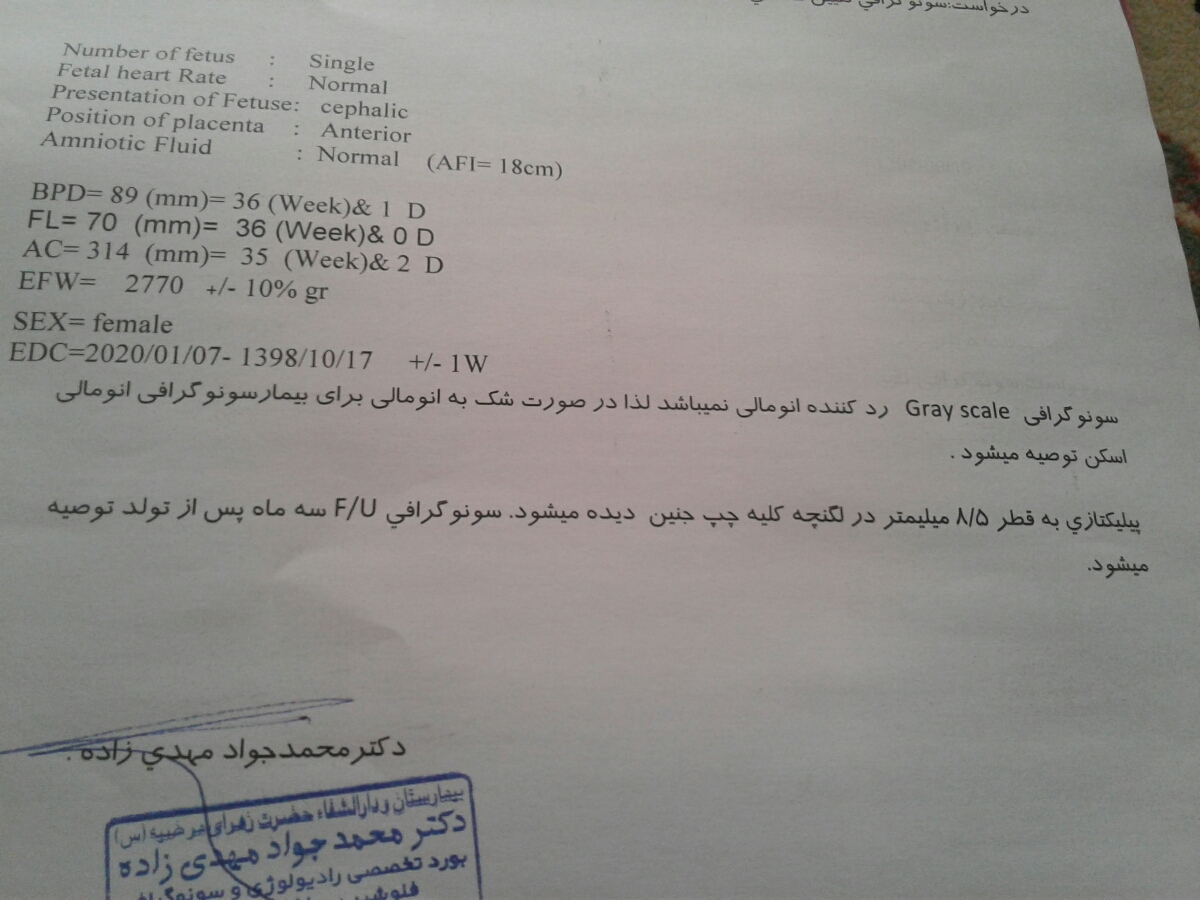 درخواست:سونوگرافي
Number of fetus : Single
Fetal heart Rate : Normal
Presentation of Fetuse: cephalic
Position of placenta : Anterior
Amniotic Fluid : Normal (AFI= 18cm)
BPD= 89 (mm)= 36 (Week)& 1 D
FL= 70 (mm)= 36 (Week)& 0 D
AC= 314 (mm)= 35 (Week)& 2 D
EFW= 2770 +/- 10% gr
SEX= female
EDC=2020/01/07- 1398/10/17 +/- 1W
سونوگرافی Gray scale رد کننده انومالی نمیباشد لذا در صورت شک به انومالی برای بیمارسونوگرافی انومالی
اسکن توصیه میشود .
پيليکتازي به قطر ۸/۵ ميليمتر در لگنچه کليه چپ جنين ديده ميشود. سونوگرافي F/U سه ماه پس از تولد توصيه
ميشود.
دکترمحمدجواد مهدي زاده .
بیمارستان ودارالشفاء حضرت زهرای مرضییه (س)
دکتر محمد جواد مهدی زاده
بورد تخصصی رادیولوژی و سونوگرافی